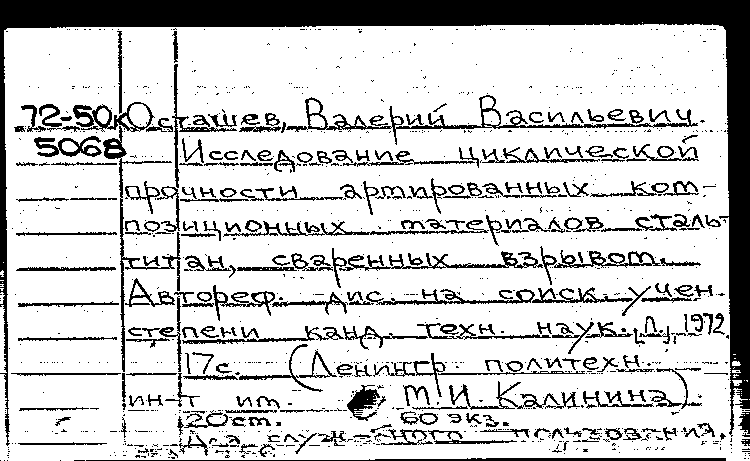 72-50к Осташев, Валерий Васильевич.
5068 Исследование циклической
прочности артированных ком-
позиционных материалов сталь-
титан, сваренных взрывом.
Автореф. дис. на соиск. учен.
степени канд. техн. наук. Л., 1972.
17с. (Ленингр. политехн.
ин-т им. М.И. Калинина).
20ст. 60 экз.
Для служебного пользования.